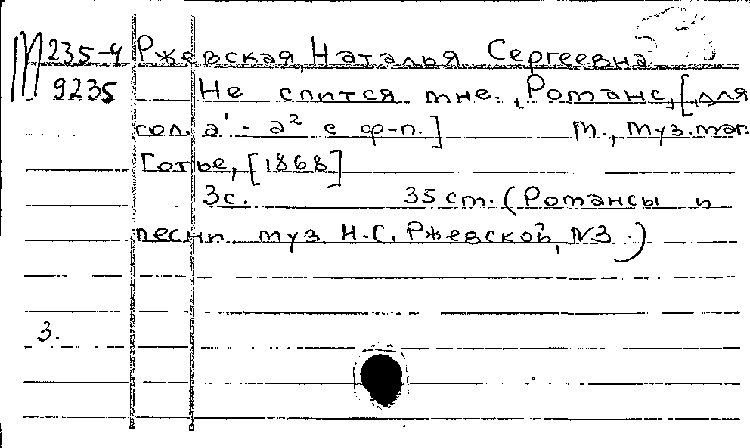 М 235-4 Ржевская, Наталья Сергеевна
9235 Не спится мне. Романс, [для
сол. a¹ - a² с ф-п.] М., муз. маг.
Готье, [1868]
3с. 35 ст. (Романсы и
песни муз. Н.С. Ржевской, N3.)
3.